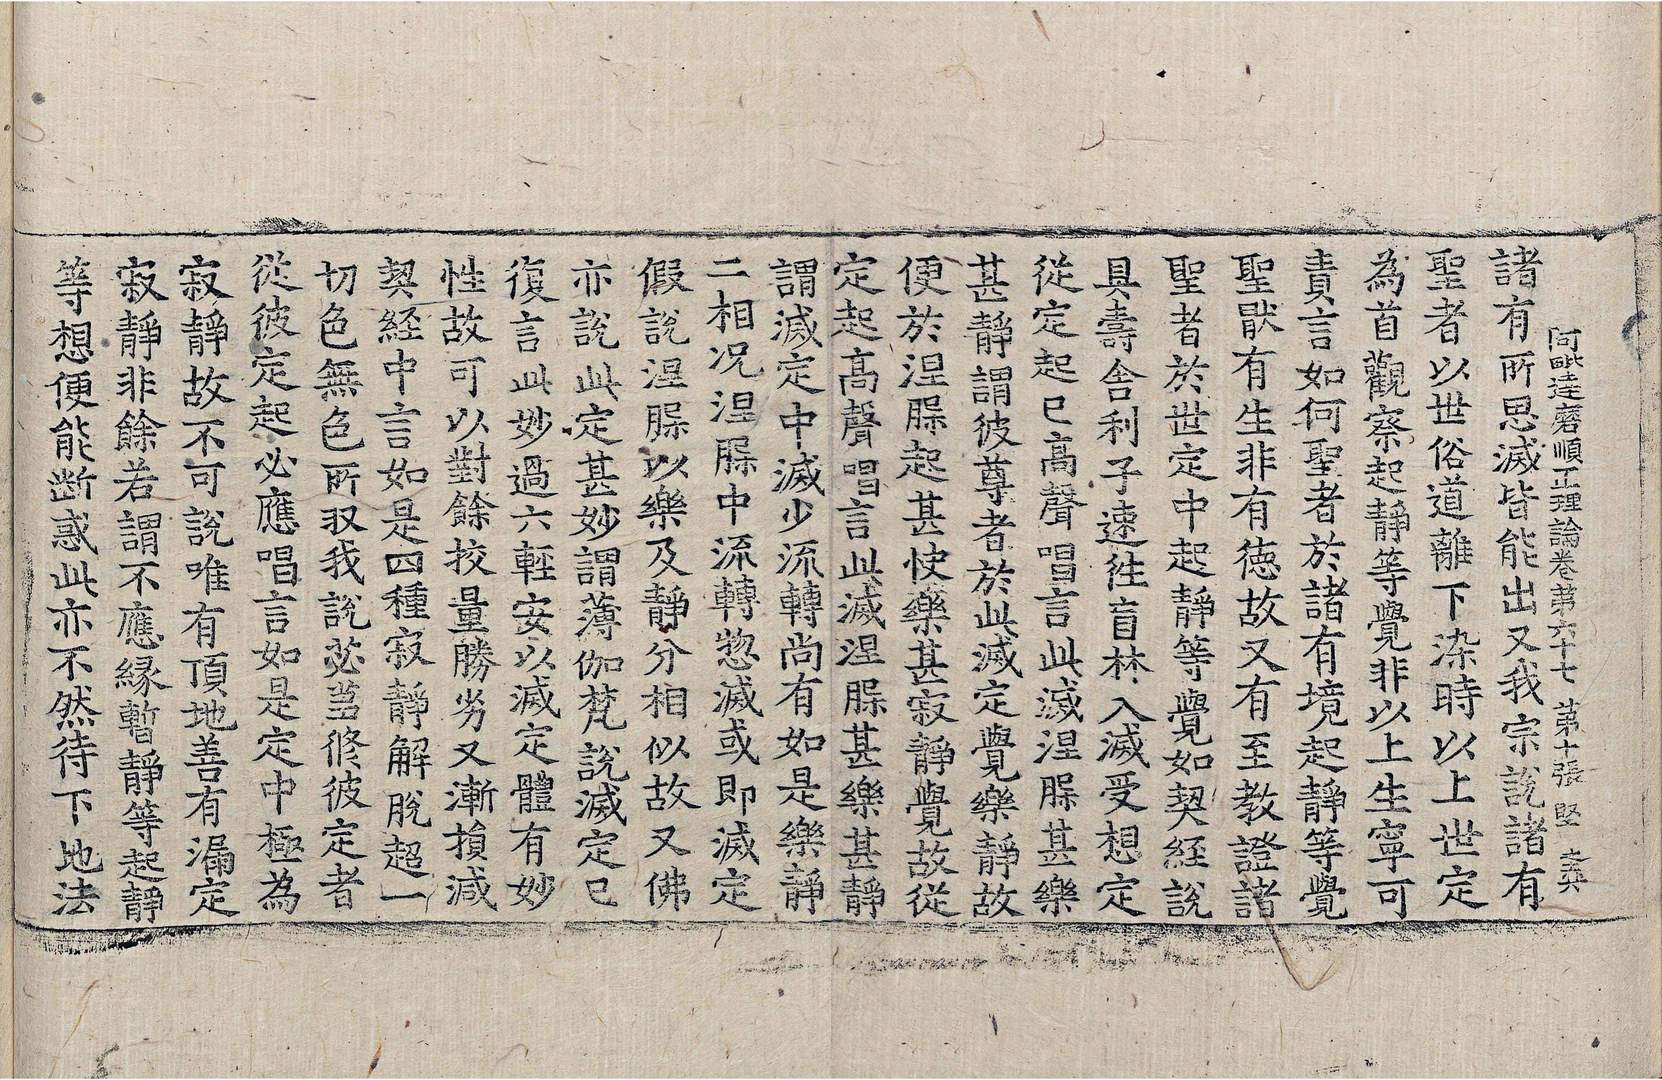 阿毗達磨順正理論卷第六十七 第十張 堅
諸有所思滅皆能出又我宗說諸有
聖者以世俗道離下染時以上世定
為首觀察起靜等覺非以上生寧可
責言如何聖者於諸有境起靜等覺
聖猒有生非有德故又有至教證諸
聖者於世定中起靜等覺如契経說
具壽舍利子速往盲林入滅受想定
從定起已高聲唱言此滅涅槃甚樂
甚靜謂彼尊者於此滅定覺樂靜故
便於涅槃起甚快樂甚寂靜覺故從
定起高聲唱言此滅涅槃甚樂甚靜
謂滅定中滅少流轉尚有如是樂靜
二相况涅槃中流轉惣滅或即滅定
假說涅槃以樂及靜分相似故又佛
亦說此定甚妙謂薄伽梵說滅定已
復言此妙過六輕安以滅定體有妙
性故可以對餘挍量勝劣又漸損減
契経中言如是四種寂靜解脫超一
切色無色所収我說苾芻修彼定者
從彼定起必應唱言如是定中極為
寂靜故不可說唯有頂地善有漏定
寂靜非餘若謂不應緣暫靜等起靜
等想便能断惑此亦不然待下地法